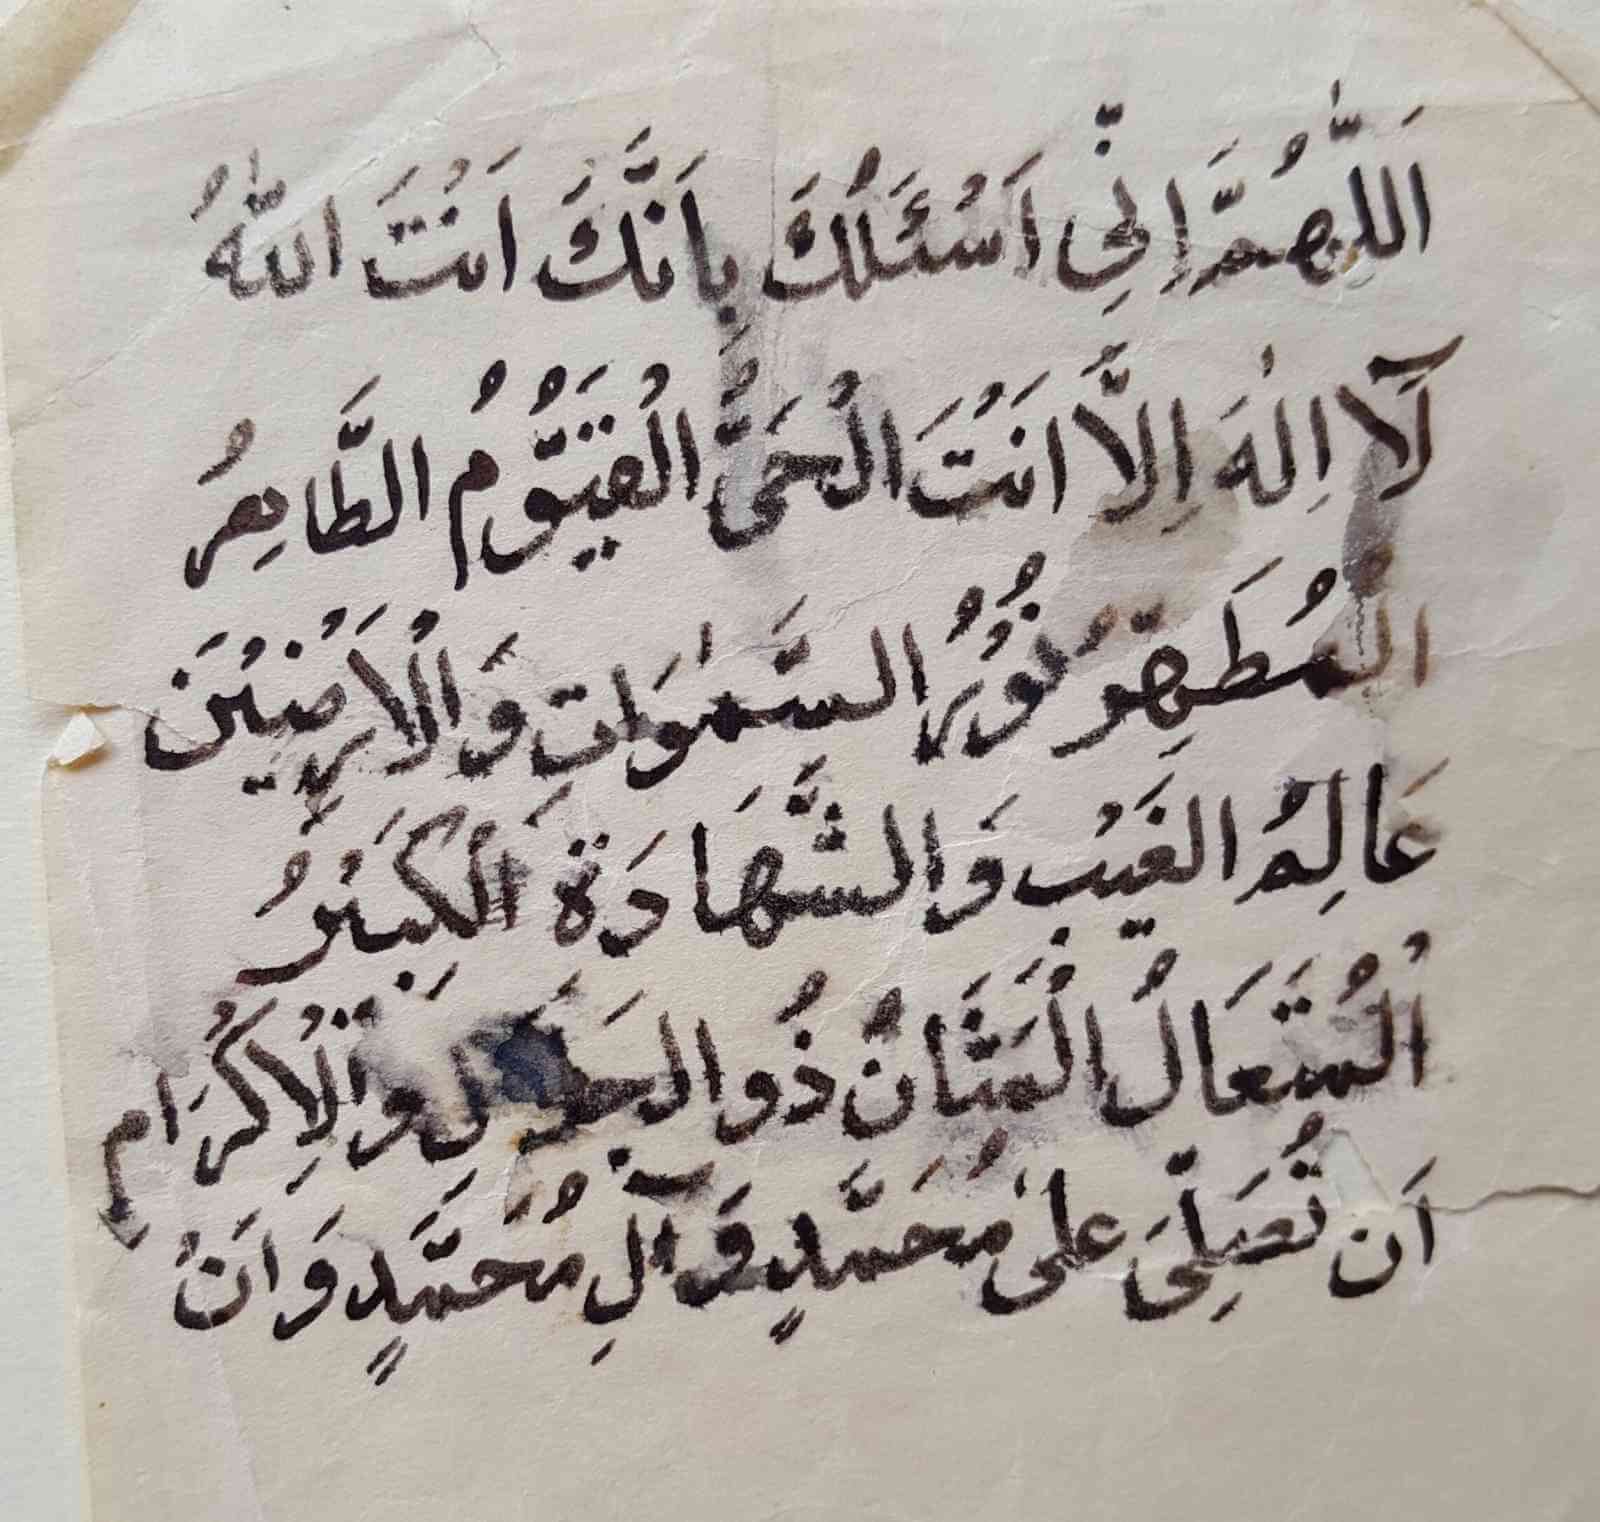 اَللّٰهُمَّ اِنِّي اَسْئَلُكَ بِاَنَّكَ اَنْتَ اللّٰهُ
لَآ اِلٰهَ اِلَّا اَنْتَ الْحَىُّ الْقَيُّوْمُ الطَّاهِرُ
المُطَهِّرُ نُوْرُ السَّمٰوَاتِ وَالْاَرَضِيْنَ
عَالِمُ الغَيْبِ وَالشَّهَادَةِ الْكَبِيْرُ
الْمُتَعَالُ الْمَنَّانُ ذُو الْجَلَالِ وَالْاِكْرَامِ
اَن تُصَلِّىَ عَلىٰ مُحَمَّدٍ وَآلِ مُحَمَّدٍ وَ اَنْ